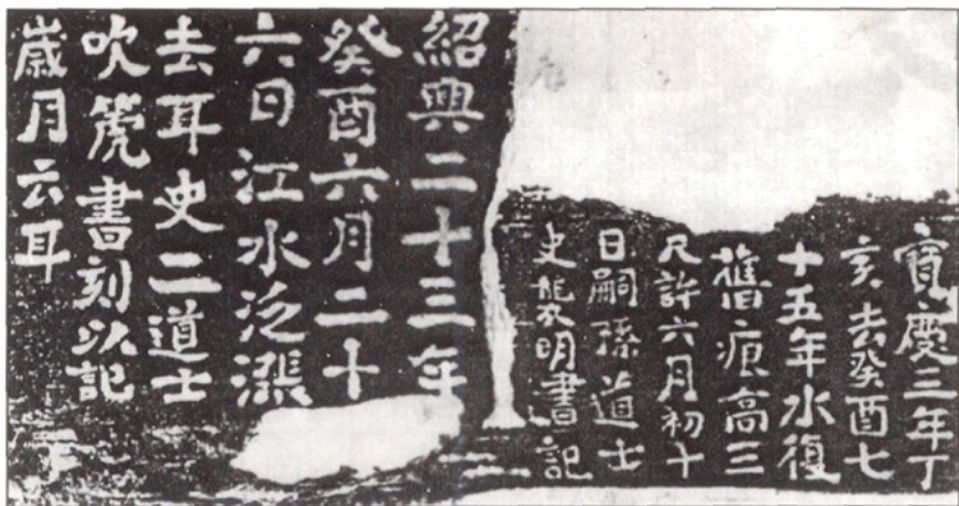 寶慶三年丁
亥去癸酉七
十五年水復
舊痕高三
尺許六月初十
日嗣孫道士
史明書記
紹興二十三年
癸酉六月二十
六日江水泛漲
去耳史二道士
吹箎書刻以記
歲月云耳